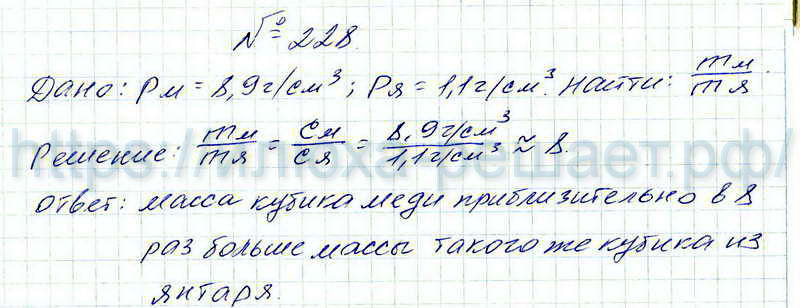 № 228.
Дано: ρм = 8,9г/см³; ρя = 1,1г/см³. Найти: mм/mя.
Решение: mм/mя = См/Ся = 8,9г/см³/1,1г/см³ ≈ 8.
Ответ: масса кубика меди приблизительно в 8
раз больше массы такого же кубика из
янтаря.